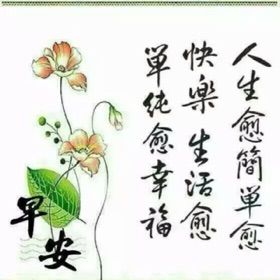 人生愈簡单愈
快樂生活愈
單纯愈幸福
早安